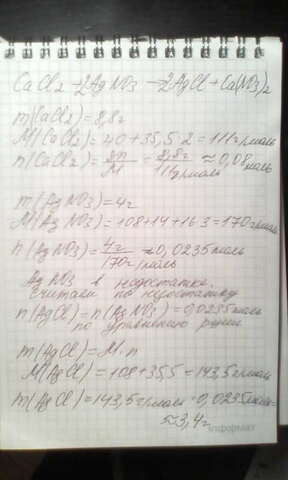 CaCl2 + 2AgNO3 → 2AgCl + Ca(NO3)2
m(CaCl2) = 8,8г
M(CaCl2) = 40 + 35,5·2 = 111г/моль
n(CaCl2) = m/M = 8,8г/111г/моль ≈ 0,08моль
m(AgNO3) = 4г
M(AgNO3) = 108+14+16·3 = 170г/моль
n(AgNO3) = 4г/170г/моль ≈ 0,0235моль
AgNO3 в недостатке.
Считаем по недостатку
n(AgCl) = n(AgNO3) = 0,0235моль
по уравнению реакции
m(AgCl) = M·n
M(AgCl) = 108+35,5 = 143,5г/моль
m(AgCl) = 143,5г/моль · 0,0235моль =
≈ 3,4г
информат